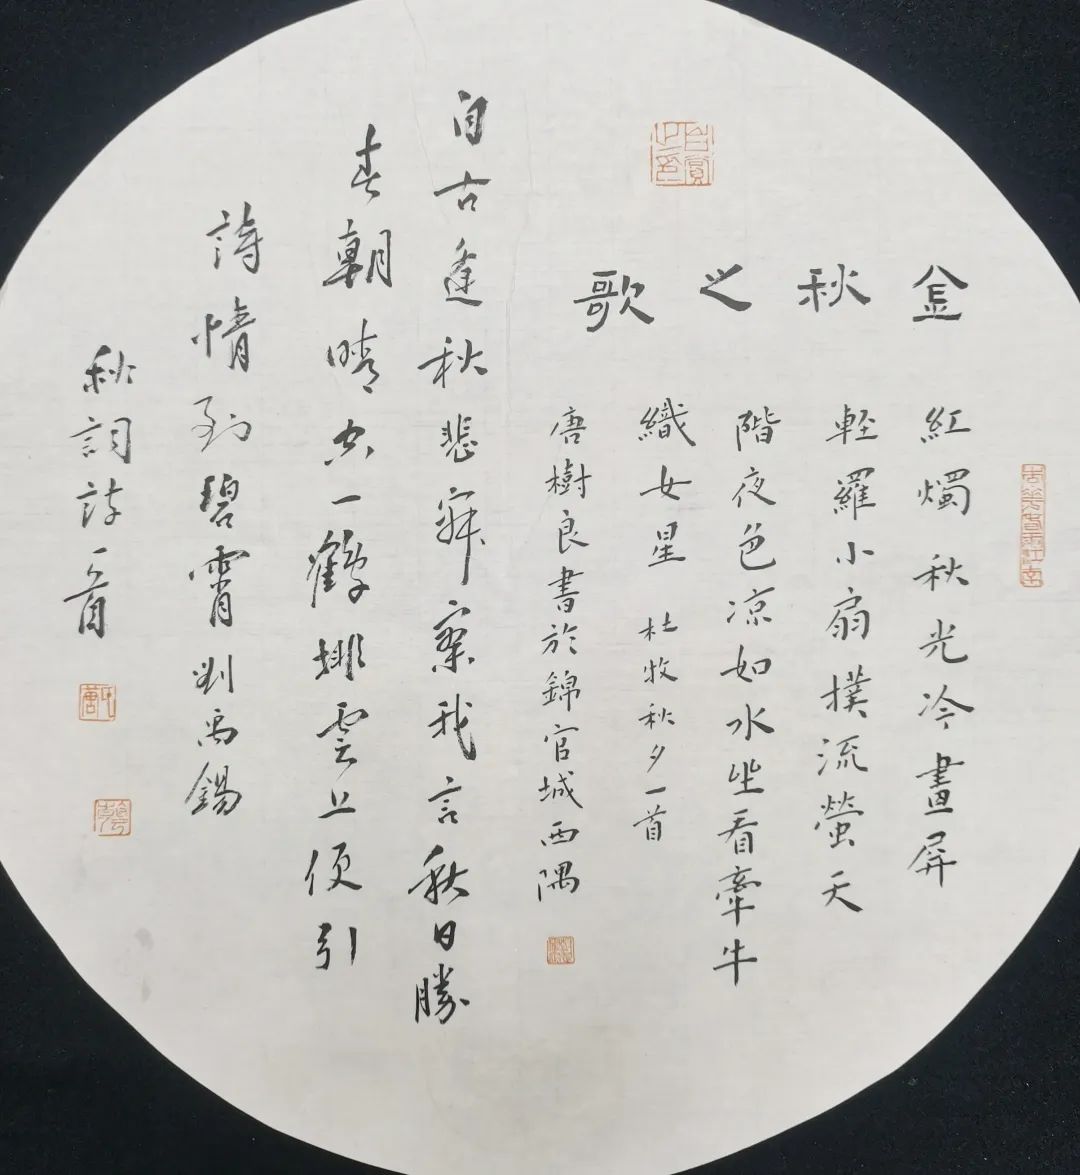 金秋之歌
紅燭秋光冷畫屏
輕羅小扇撲流螢天
階夜色凉如水坐看牽牛
織女星 杜牧秋夕一首
唐樹良書於錦官城西隅
自古逢秋悲寂寥我言秋日勝
春朝晴空一鶴排雲上便引
詩情到碧霄劉禹錫
秋詞詩一首